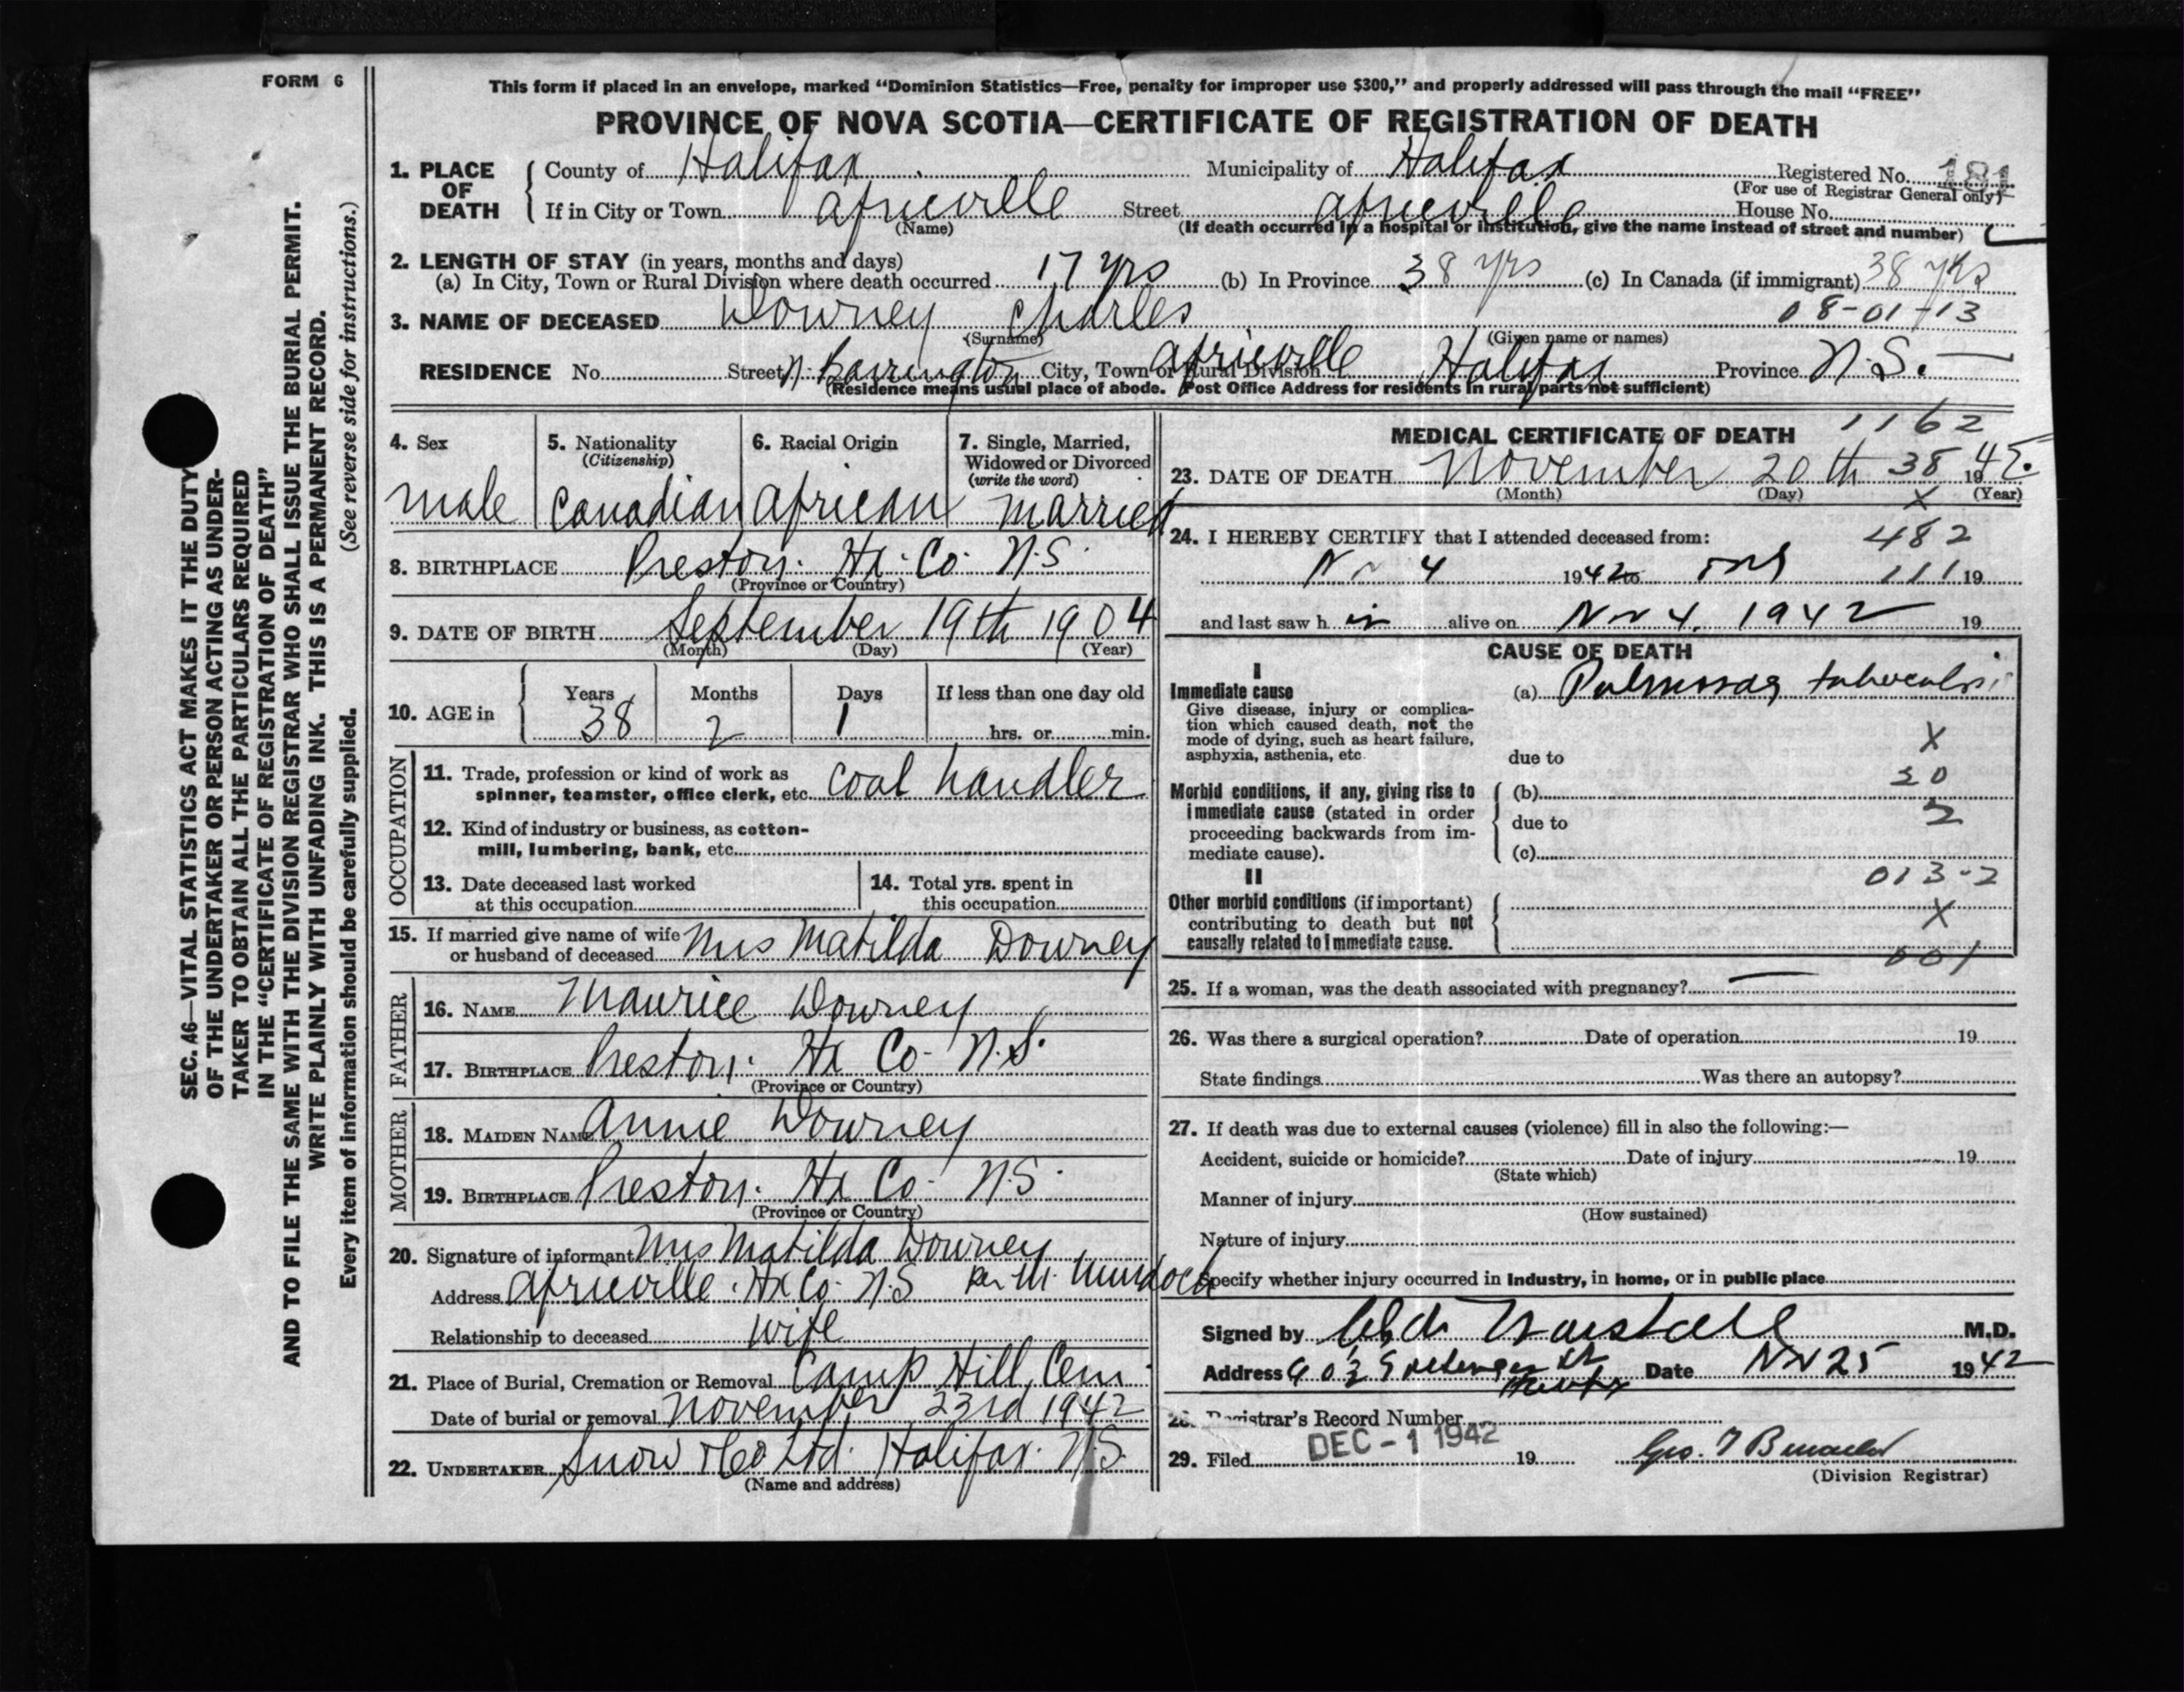 FORM 6
This form if placed in an envelope, marked "Dominion Statistics—Free, penalty for improper use $300," and properly addressed will pass through the mail "FREE"
PROVINCE OF NOVA SCOTIA—CERTIFICATE OF REGISTRATION OF DEATH
1. PLACE OF DEATH
County of Halifax Municipality of Halifax Registered No. 181
(For use of Registrar General only)
If in City or Town Africville Street Africville House No.
(Name) (If death occurred in a hospital or institution, give the name instead of street and number)
2. LENGTH OF STAY (in years, months and days)
(a) In City, Town or Rural Division where death occurred 17 yrs (b) In Province 38 yrs (c) In Canada (if immigrant) 38 yrs
08-01-13
3. NAME OF DECEASED Downey Charles
(Surname) (Given name or names)
RESIDENCE No. Street N. Barrington City, Town or Rural Division Africville Halifax Province N.S.
(Residence means usual place of abode. Post Office Address for residents in rural parts not sufficient)
4. Sex
male
5. Nationality
(Citizenship)
Canadian
6. Racial Origin
African
7. Single, Married, Widowed or Divorced
(write the word)
Married
8. BIRTHPLACE Preston. Hx. Co. N.S.
(Province or Country)
9. DATE OF BIRTH September 19th 1904
(Month) (Day) (Year)
10. AGE in
Years Months Days If less than one day old
38 2 1 hrs. or min.
OCCUPATION
11. Trade, profession or kind of work as
spinner, teamster, office clerk, etc. Coal handler
12. Kind of industry or business, as cotton-
mill, lumbering, bank, etc.
13. Date deceased last worked
at this occupation
14. Total yrs. spent in
this occupation
15. If married give name of wife
or husband of deceased Mrs Matilda Downey
FATHER
16. NAME Maurice Downey
17. BIRTHPLACE Preston. Hx Co. N.S.
(Province or Country)
MOTHER
18. MAIDEN NAME Annie Downey
19. BIRTHPLACE Preston. Hx Co. N.S.
(Province or Country)
20. Signature of informant Mrs Matilda Downey
Address Africville. Hx Co. N.S per M. Murdoch
Relationship to deceased wife
21. Place of Burial, Cremation or Removal Camp Hill Cem.
Date of burial or removal November 23rd 1942
22. UNDERTAKER Snow & Co Ltd. Halifax. N.S.
(Name and address)
MEDICAL CERTIFICATE OF DEATH
1162
23. DATE OF DEATH November 20th 38 1942.
(Month) (Day) X (Year)
24. I HEREBY CERTIFY that I attended deceased from:
482
4 1942 to 111 19
and last saw h alive on 4, 1942 19
CAUSE OF DEATH
I
Immediate cause
Give disease, injury or complica-
tion which caused death, not the
mode of dying, such as heart failure,
asphyxia, asthenia, etc.
(a) Pulmonary tuberculosis
X
due to
20
Morbid conditions, if any, giving rise to
immediate cause (stated in order
proceeding backwards from im-
mediate cause).
(b)
2
due to
(c)
013-2
II
Other morbid conditions (if important)
contributing to death but not
causally related to immediate cause.
X
001
25. If a woman, was the death associated with pregnancy? —
26. Was there a surgical operation? Date of operation 19
State findings Was there an autopsy?
27. If death was due to external causes (violence) fill in also the following:—
Accident, suicide or homicide? Date of injury 19
(State which)
Manner of injury
(How sustained)
Nature of injury
Specify whether injury occurred in Industry, in home, or in public place
Signed by M.D.
Address Date Nov 25 1942
28. Registrar's Record Number
29. Filed DEC -1 1942 19
(Division Registrar)
SEC. 46—VITAL STATISTICS ACT MAKES IT THE DUTY
OF THE UNDERTAKER OR PERSON ACTING AS UNDER-
TAKER TO OBTAIN ALL THE PARTICULARS REQUIRED
IN THE "CERTIFICATE OF REGISTRATION OF DEATH"
AND TO FILE THE SAME WITH THE DIVISION REGISTRAR WHO SHALL ISSUE THE BURIAL PERMIT.
WRITE PLAINLY WITH UNFADING INK. THIS IS A PERMANENT RECORD.
Every item of information should be carefully supplied. (See reverse side for instructions.)